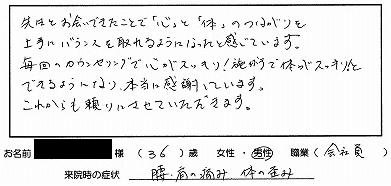 先生とお会いできたことで「心」と「体」のつながりを
上手にバランスを取れるようになったと感じています。
毎回のカウンセリングで心がスッキリ!施術で体がスッキリ!と
できるようになり、本当に感謝しています。
これからも頼りにさせていただきます。
お名前 様 (36)歳 女性・男性 職業(会社員)
来院時の症状 腰・肩の痛み 体の歪み